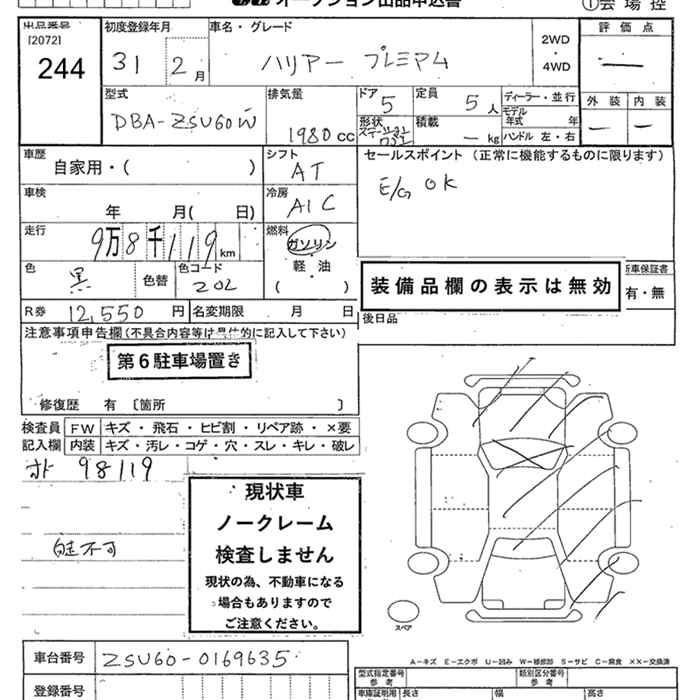 オークション出品申込書
①会場控
出品番号
[2072]
244
初度登録年月
31 2月
車名・グレード
ハリアー プレミアム
2WD
・
4WD
評価点
—
外装 内装
— —
型式
DBA-ZSU60W
排気量
1980cc
ドア
5
定員
5人
形状
ステーションワゴン
積載
— kg
ディーラー・並行
モデル年式 年
ハンドル 左・右
車歴
自家用・( )
シフト
AT
セールスポイント (正常に機能するものに限ります)
E/G OK
車検
年 月( 日)
冷房
A/C
走行
9万8千119km
燃料
ガソリン
軽・油
( )
色
黒
色替
色コード
202
装備品欄の表示は無効
新車保証書
有・無
R券 12,550円
名変期限 月 日
後日品
注意事項申告欄(不具合内容等は具体的に記入して下さい)
第6駐車場置き
修復歴 有 〔箇所 〕
検査員記入欄
FW キズ・飛石・ヒビ割・リペア跡・×要
内装 キズ・汚レ・コゲ・穴・スレ・キレ・破レ
98119
自走不可
現状車
ノークレーム
検査しません
現状の為、不動車になる
場合もありますので
ご注意ください。
スペア
A-キズ E-エクボ U-凹み W-補修跡 S-サビ C-腐食 ××-交換済
車台番号 ZSU60-0169635
登録番号
型式指定番号
参考
類別区分番号
参考
車庫証明用
長さ 幅 高さ